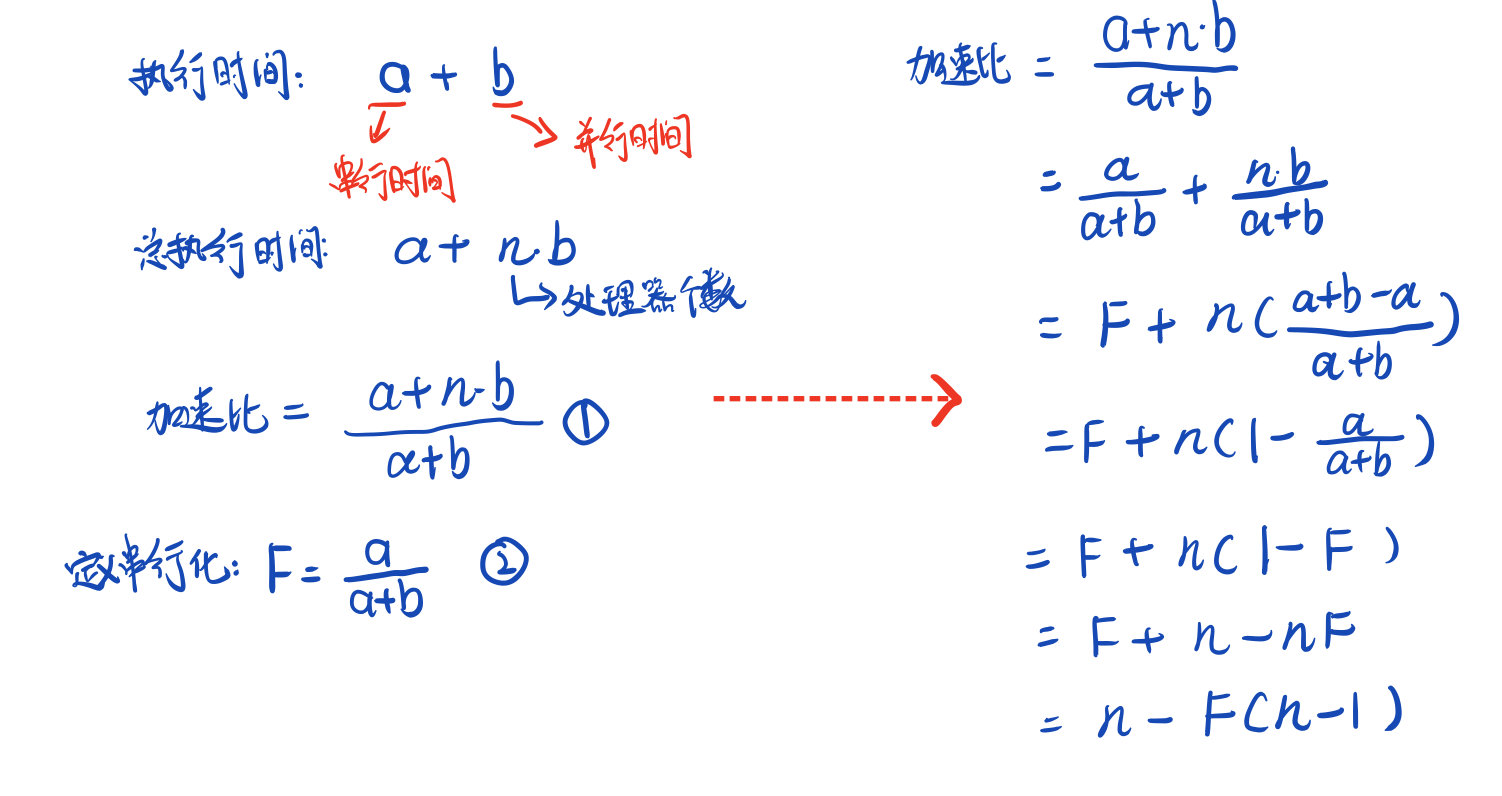 执行时间: a + b
串行时间
并行时间
总执行时间: a + n·b
处理器个数
加速比 = (a+n·b)/(a+b) ①
定义串行化: F = a/(a+b) ②
加速比 = (a+n·b)/(a+b)
= a/(a+b) + n·b/(a+b)
= F + n((a+b-a)/(a+b))
= F + n(1 - a/(a+b))
= F + n(1-F)
= F + n - nF
= n - F(n-1)